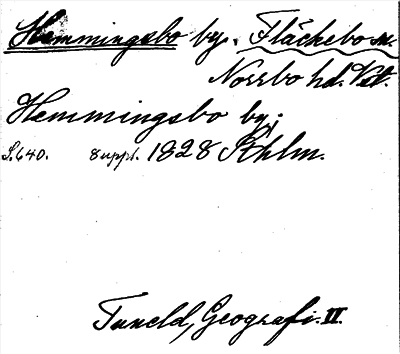 Hemmingsbo by. Fläckebo sn.
Norrbo hd. Vstl.
Hemmingsbo by;
S. 640. 8 uppl. 1828 Sthlm.
Tuneld, Geografi. II.